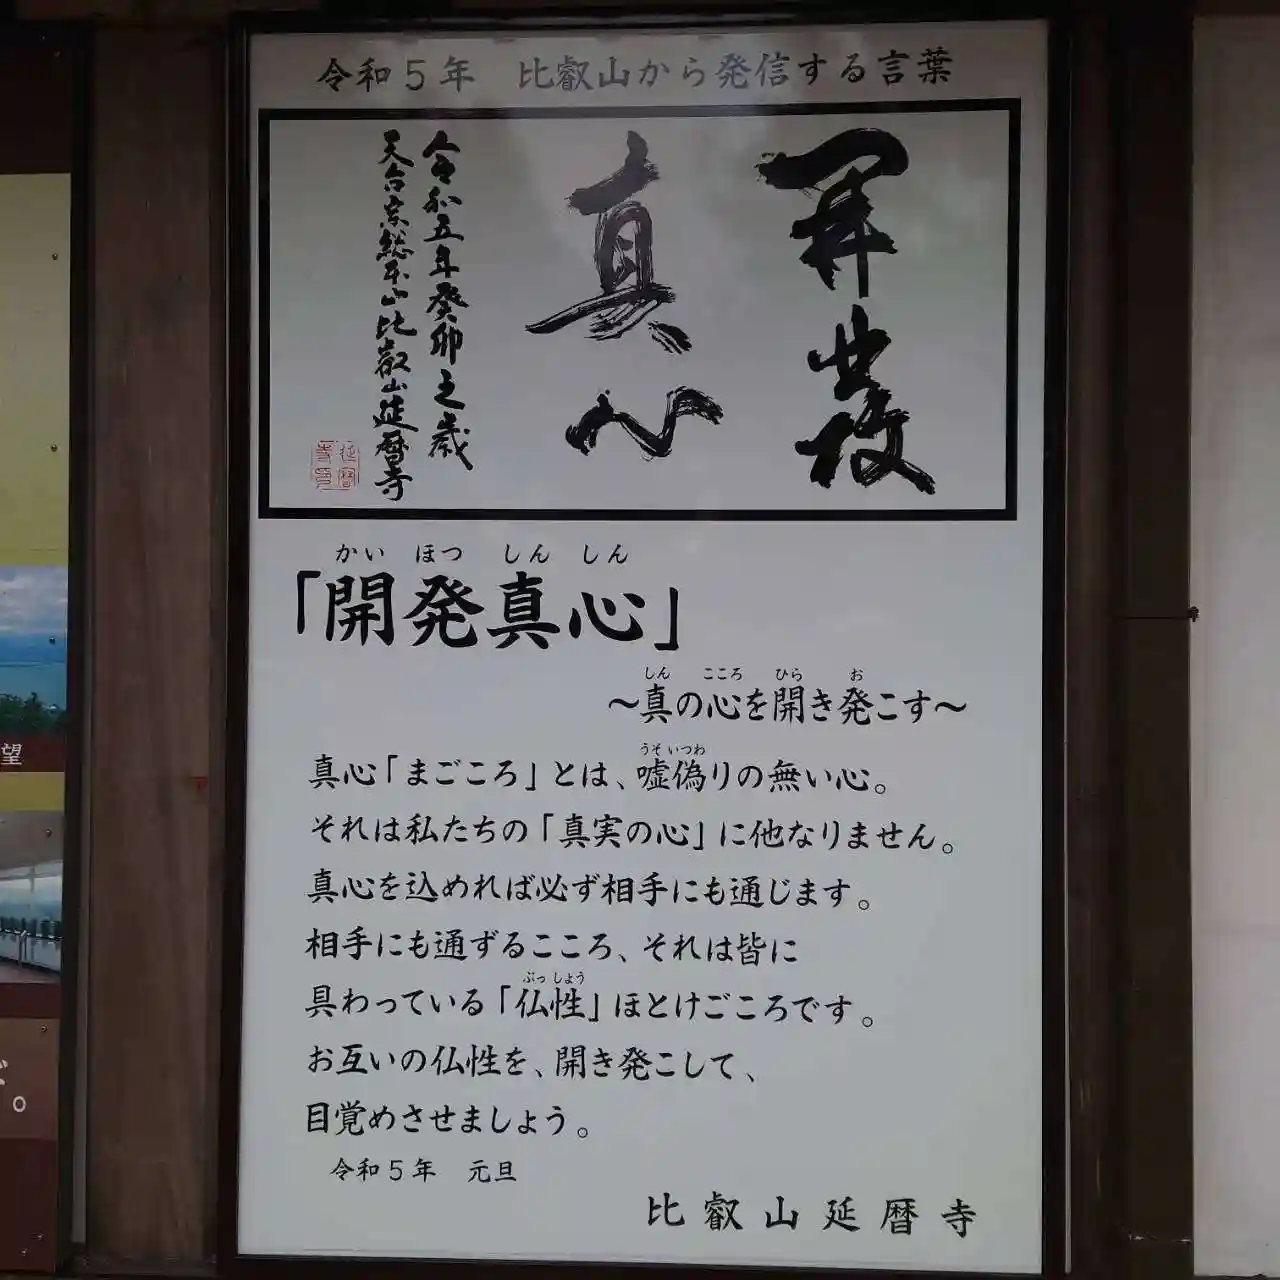 令和５年　比叡山から発信する言葉
開発
真心
令和五年癸卯之歳
天台宗総本山比叡山延暦寺
かい ほつ しん しん
「開発真心」
しん こころ ひら お
～真の心を開き発こす～
うそ いつわ
真心「まごころ」とは、嘘偽りの無い心。
それは私たちの「真実の心」に他なりません。
真心を込めれば必ず相手にも通じます。
相手にも通ずるこころ、それは皆に
ぶっ しょう
具わっている「仏性」ほとけごころです。
お互いの仏性を、開き発こして、
目覚めさせましょう。
令和５年　元旦
比叡山延暦寺
望